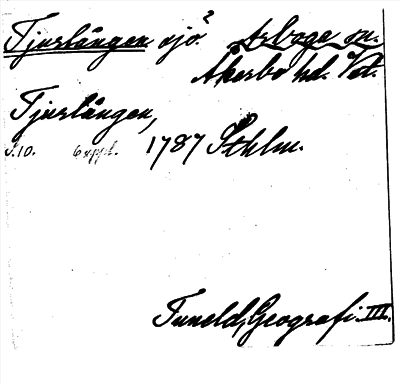 Tjurlången sjö? Arboga sn.
Åkerbo hd. Vstm.
Tjurlången,
s. 10. 6 uppl. 1787 Sthlm.
Tuneld, Geografi III.